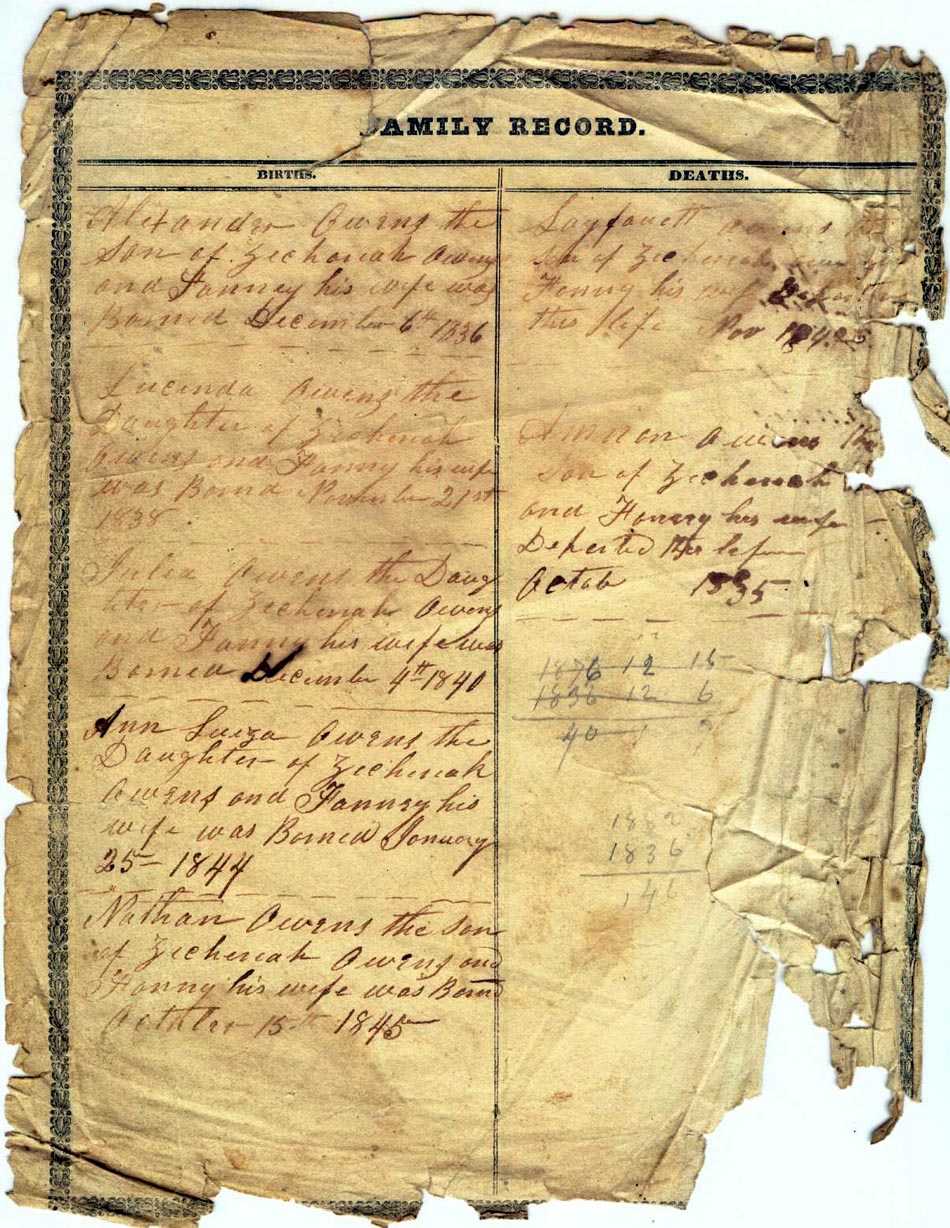 FAMILY RECORD.
BIRTHS.
Alexander Owens the
Son of Zecheriah Owens
and Fanney his wife was
Borned December 6th 1836
Lucinda Owens the
Daughter of Zecheriah
Owens and Fanny his wife
was Borned November 21st
1838
Julia Owens the Daug
ter of Zecheriah Owens
and Fanny his wife was
Borned December 4th 1840
Ann Luiza Owens the
Daughter of Zecheriah
Owens and Fanney his
wife was Borned January
25 1844
Nathan Owens the son
of Zecheriah Owens and
Fanny his wife was Borned
October 15th 1845
DEATHS.
Layfauett Owens the
son of Zecheriah
Fenny his wife
this life Nov
Owens the
son of Zecheriah
and Fanny his wife
Departed this life
Octob 1835
1876 12 15
1836 12 6
40 9
1836